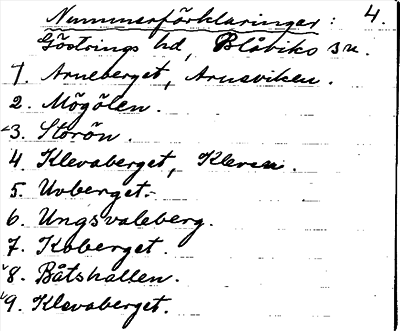 Nummerförklaringar: 4.
Göstrings hd, Blåviks sn.
1. Arneberget, Arnsviken.
2. Mögölen.
3. Storön.
4. Klevaberget, Kleven.
5. Uvberget.
6. Ungsvaleberg.
7. Koberget.
8. Båtshällen.
9. Klevaberget.